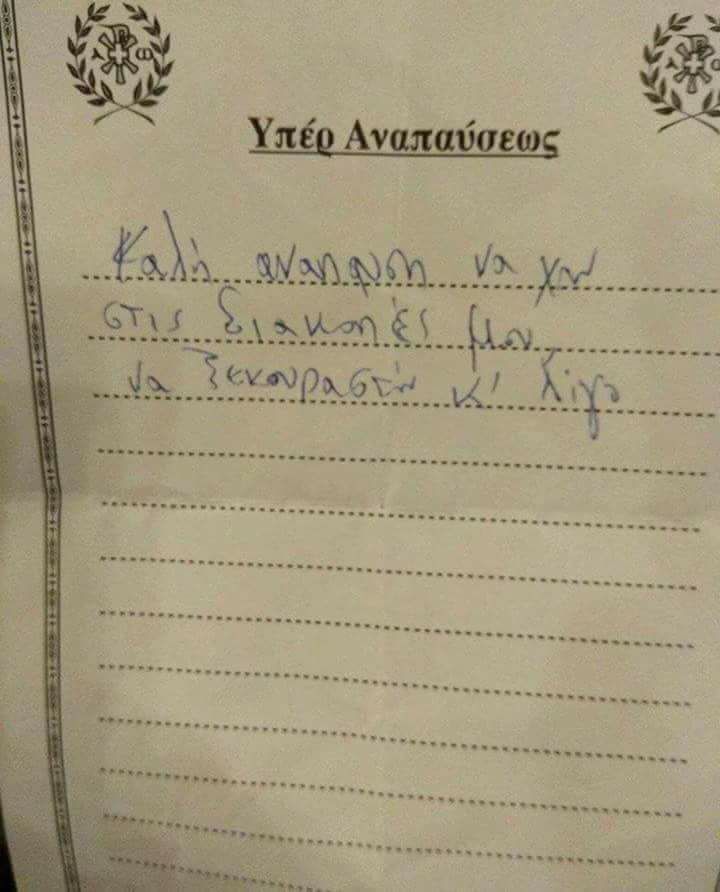 Υπέρ Αναπαύσεως
Καλή αναπαυση να χω
στις διακοπές μου
να ξεκουραστώ κ' λίγο